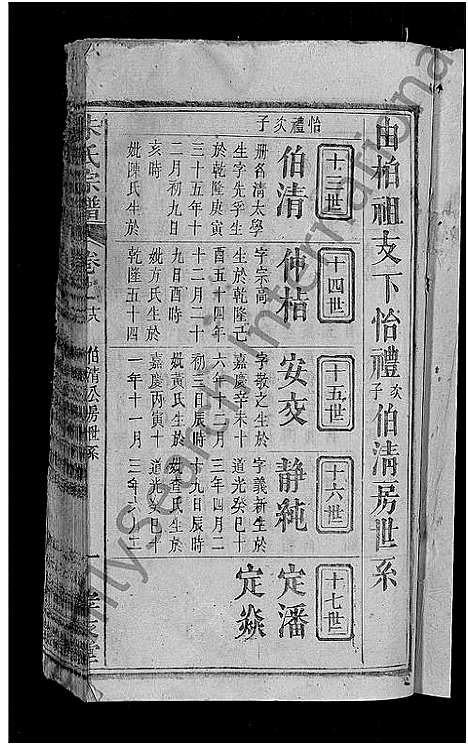 由柏祖支下怡禮次子伯清房世系
十三世
怡禮次子
伯清
册名清太學
生字先孚生
於乾隆庚寅
三十五年十
二月初九日
亥時
妣陳氏生於
乾隆五十四
十四世
仲桔
字宗高
生於乾隆己
酉五十四年
十二月二十
九日酉時
妣方氏生於
嘉慶丙寅十
一年十一月
十五世
安交
字敬之生於
嘉慶辛未十
六年十二月
初三日辰時
妣黃氏生於
道光癸巳十
三年
十六世
静純
字義新生於
道光癸巳十
三年四月二
十九日辰時
妣查氏生於
十七世
定潘
定燊
朱氏宗譜
卷
伯清公房世系